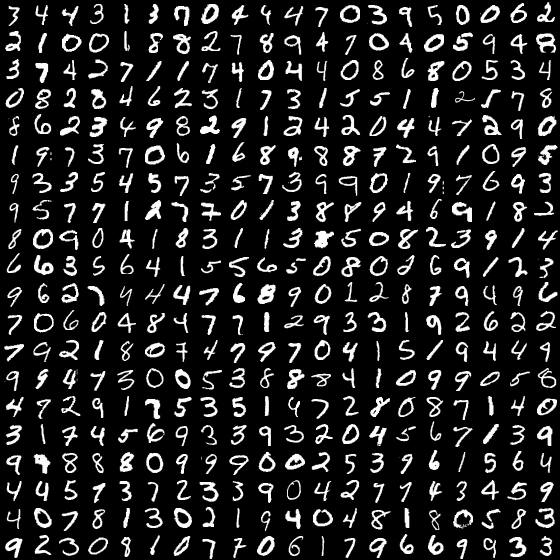 3 4 4 3 1 3 7 0 4 4 4 7 0 3 9 5 0 0 6 2
2 1 0 0 1 8 8 2 7 8 9 4 7 0 4 0 5 9 4 8
3 7 4 2 7 1 1 7 4 0 4 4 0 8 6 8 0 5 3 4
0 8 2 8 4 6 2 3 1 7 3 1 5 5 1 1 2 5 7 8
8 6 2 3 4 9 8 2 9 1 2 4 2 0 4 4 7 2 9 0
1 9 7 3 7 0 6 1 6 8 9 8 8 7 2 9 1 0 9 5
9 3 3 5 4 5 7 3 5 7 3 9 9 0 1 9 7 6 9 3
9 5 7 7 1 2 7 7 0 1 3 8 8 9 4 6 9 1 8 2
8 0 9 0 4 1 8 3 1 1 3 8 5 0 8 2 3 9 1 4
6 6 3 5 6 4 1 5 5 6 5 0 8 0 2 6 9 1 2 3
9 6 2 7 4 4 4 7 6 8 9 0 1 2 8 7 9 4 9 6
7 0 6 0 4 8 4 7 7 1 2 9 3 3 1 9 2 6 2 2
7 9 2 1 8 0 7 4 7 9 7 0 4 1 5 1 9 4 4 9
9 9 4 7 3 0 0 5 3 8 8 8 4 1 0 9 9 0 5 8
4 7 2 9 1 7 5 3 5 1 4 7 2 8 0 8 7 1 4 0
3 1 7 4 5 6 9 3 3 9 3 2 0 4 5 6 7 1 3 9
9 9 8 8 8 0 9 9 9 0 0 2 5 3 9 6 1 5 6 4
4 4 5 7 3 7 2 3 3 9 0 4 2 7 7 4 3 4 5 9
4 0 7 8 1 3 0 2 1 9 4 0 4 8 1 8 0 5 8 3
9 2 3 0 8 1 0 7 7 0 6 1 7 9 6 6 9 9 3 3